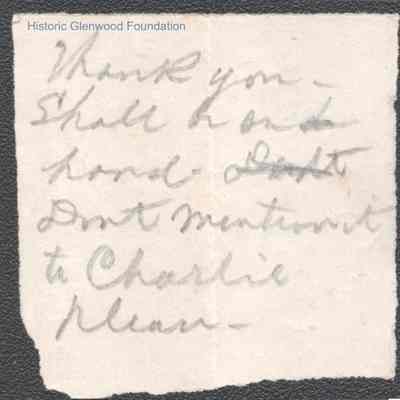 Historic Glenwood Foundation
Thank you -
Shall
hand. Dont
Dont mention it
to Charlie
please -